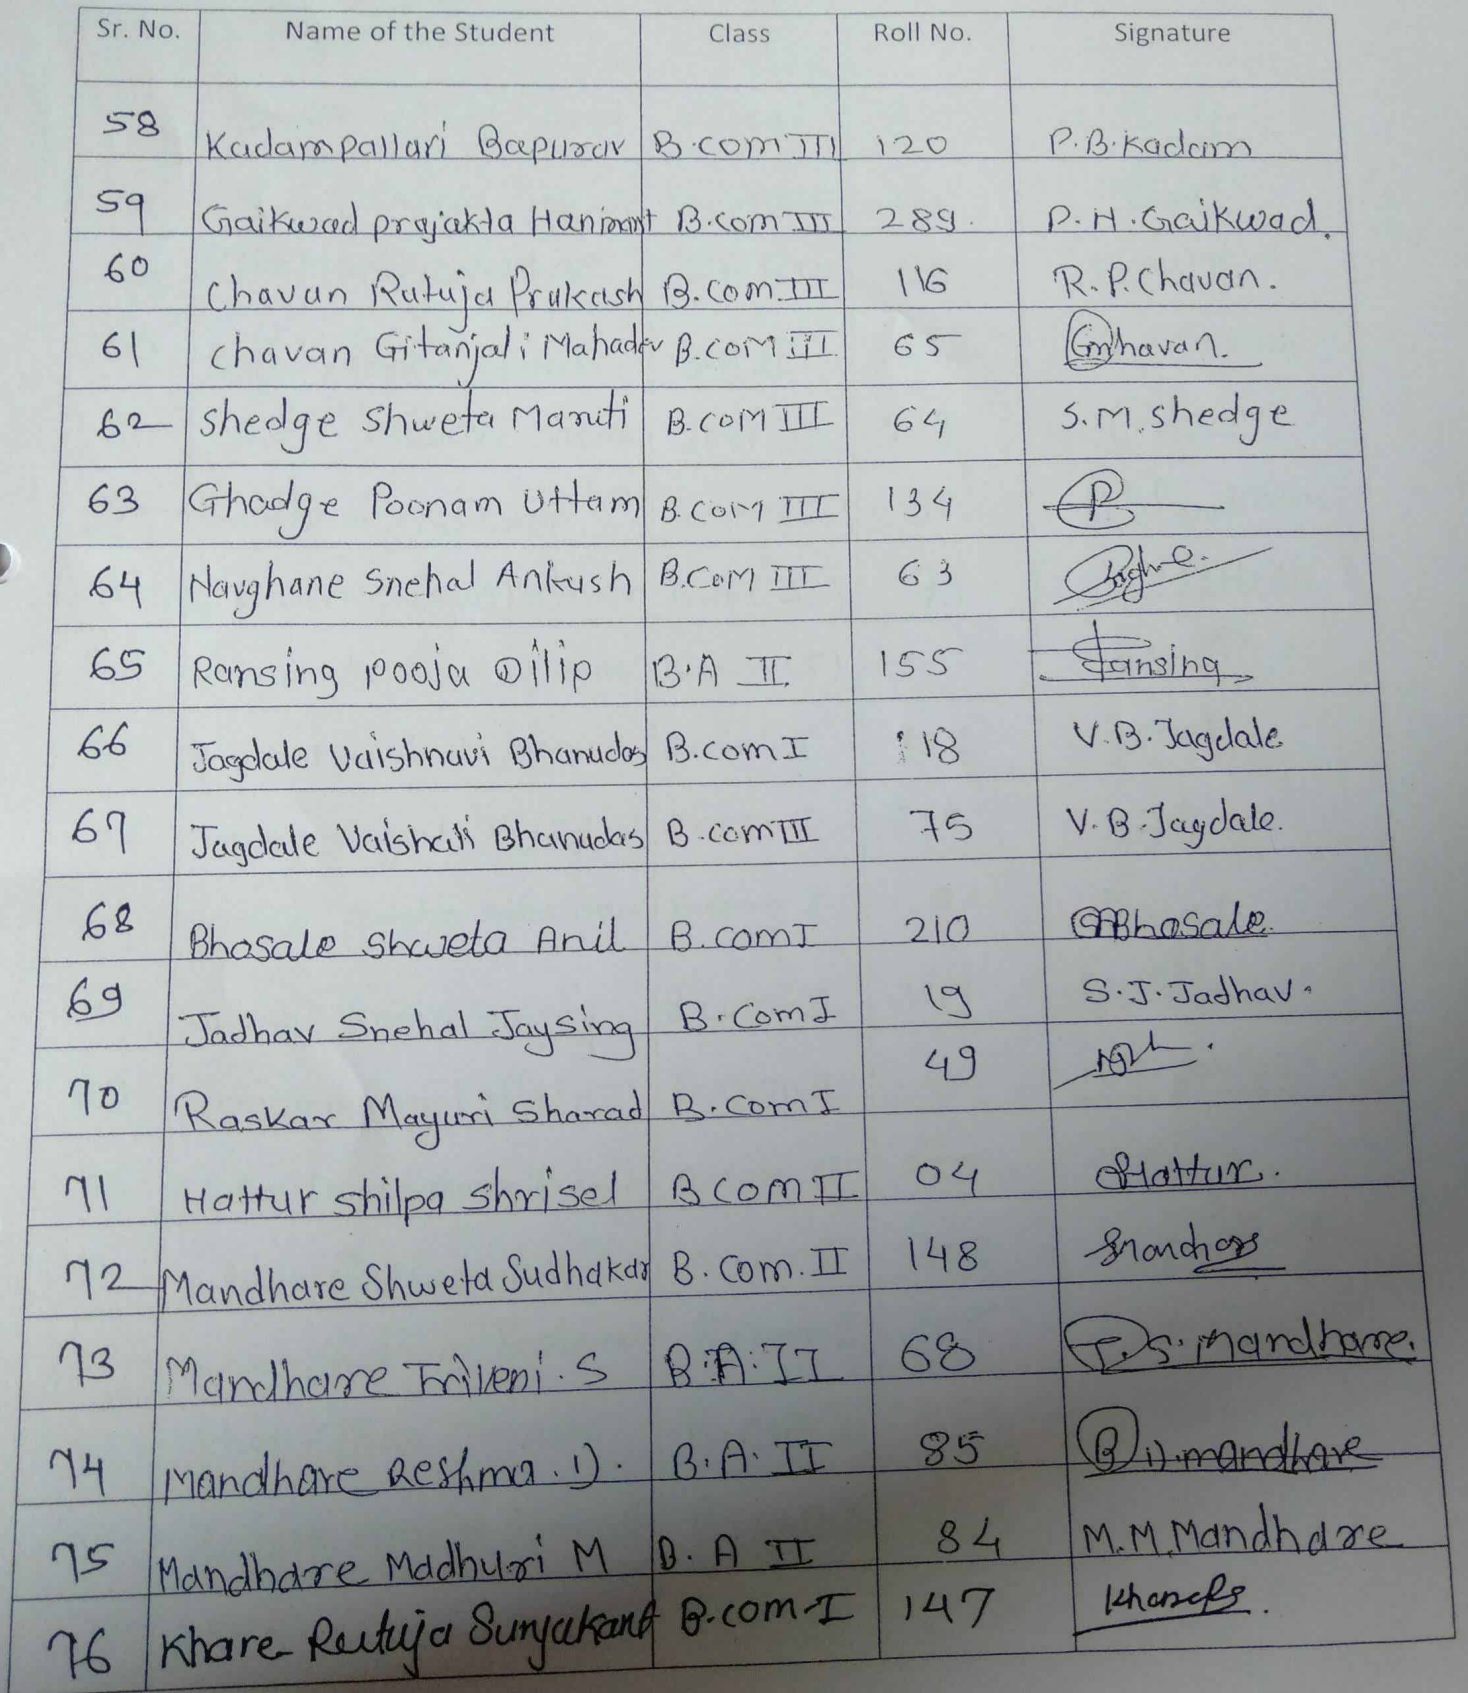 Sr. No. Name of the Student Class Roll No. Signature
58 Kadam pallavi Bapurav B.com III 120 P.B.Kadam
59 Gaikwad prajakta Hanmant B.com III 289. P.H.Gaikwad.
60 Chavan Rutuja Prakash B.com III 116 R.P.Chavan.
61 chavan Gitanjali Mahadev B.coM III 65
62 Shedge Shweta Maruti B.coM III 64 S.M.shedge
63 Ghadge Poonam Uttam B.COM III 134
64 Navghane Snehal Ankush B.CoM III 63
65 Ransing pooja Dilip B.A II 155
66 Jagdale Vaishnavi Bhanudas B.com I 118 V.B.Jagdale
67 Jagdale Vaishali Bhanudas B.com III 75 V.B.Jagdale.
68 Bhosale shweta Anil B.com I 210 Bhosale
69 Jadhav Snehal Jaysing B.Com I 19 S.J.Jadhav.
70 Raskar Mayuri Sharad B.Com I 49
71 Hattur shilpa shrisel B com II 04 SHattur.
72 Mandhare Shweta Sudhakar B.Com.II 148
73 Mandhare Triveni.S B.A.II 68 T.S.Mandhare.
74 Mandhare Reshma.D. B.A.II 85 R D.mandhare
75 Mandhare Madhuri M B.A II 84 M.M.Mandhare
76 Khare Rutuja Suryakant B.com-I 147